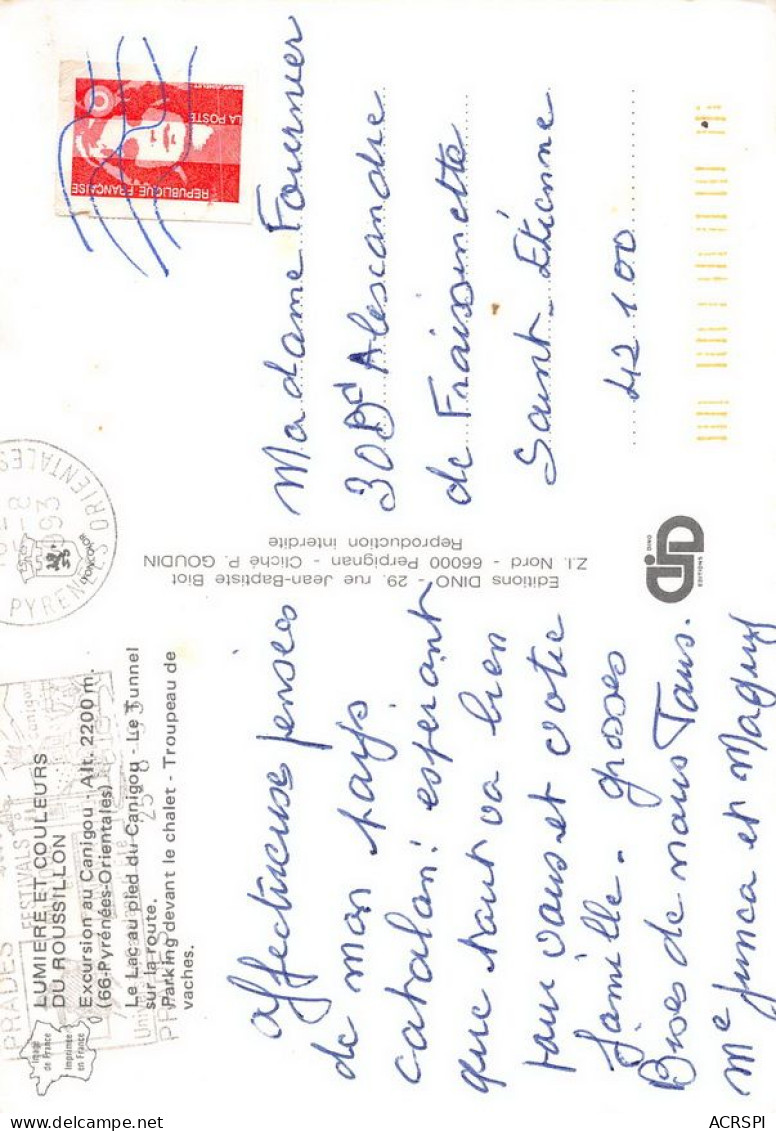 LUMIERE ET COULEURS
DU ROUSSILLON
Excursion au Canigou - Alt. 2200 m.
(66-Pyrénées-Orientales)
Le Lac au pied du Canigou - Le Tunnel
sur la route.
Parking devant le chalet - Troupeau de
vaches.
Image
de France
Imprimée
en France
PRADES
FESTIVALS
25 8 93
affectueuses pensées
de mon pays
catalan! espérant
que tout va bien
pour vous et votre
famille - grosses
Bises de nous Tous.
Me Junca et Maguy
Editions DINO - 29, rue Jean-Baptiste Biot
Z.I. Nord - 66000 Perpignan - Cliché P. GOUDIN
Reproduction interdite
DINO
EDITIONS
PYRENEES ORIENTALES
1993
REPUBLIQUE FRANÇAISE
LA POSTE
Madame Fournier
30 Bd Alescandre
de Fraissinette
Saint-Etienne
42100
ACRSPI